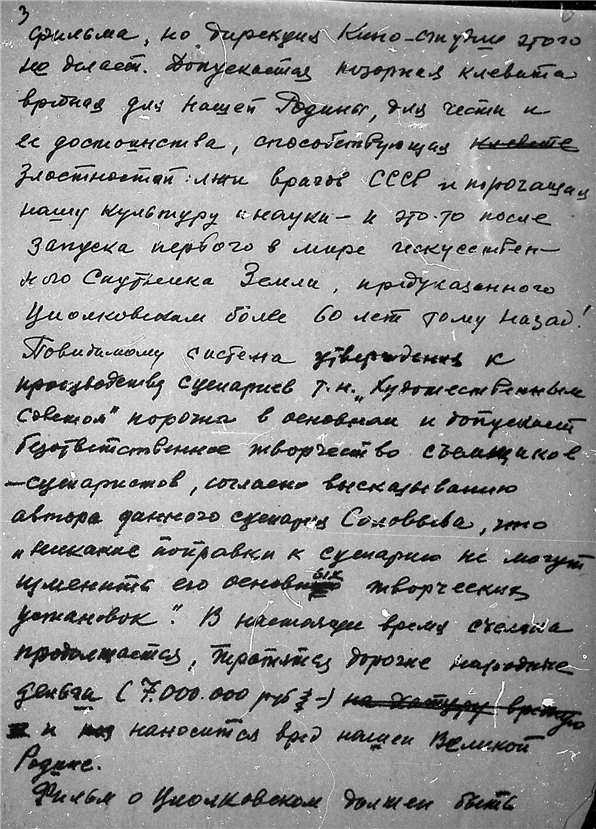 3
фильма, но дирекция Кино-студии этого
не делает. Допускается позорная клевета
вредная для нашей Родины, для чести и
ее достоинства, способствующая клевете
злостной лжи врагов СССР и порочащая
нашу культуру и науки – и это-то после
запуска первого в мире искусствен–
ного Спутника Земли, предуказанного
Циолковским более 60 лет тому назад!
Повидимому система утверждения к
производству сценариев т.н. „Художественным
советом" порочна в основном и допускает
безответственное творчество съемщиков
–сценаристов, согласно высказыванию
автора данного сценария Соловьева, что
„никакие поправки к сценарию не могут
изменить его основных творческих
установок". В настоящее время съемка
продолжается, тратятся дорогие народные
деньги (7.000.000 руб) на халтуру вредную
и наносится вред нашей Великой
Родине.
Фильм о Циолковском должен быть